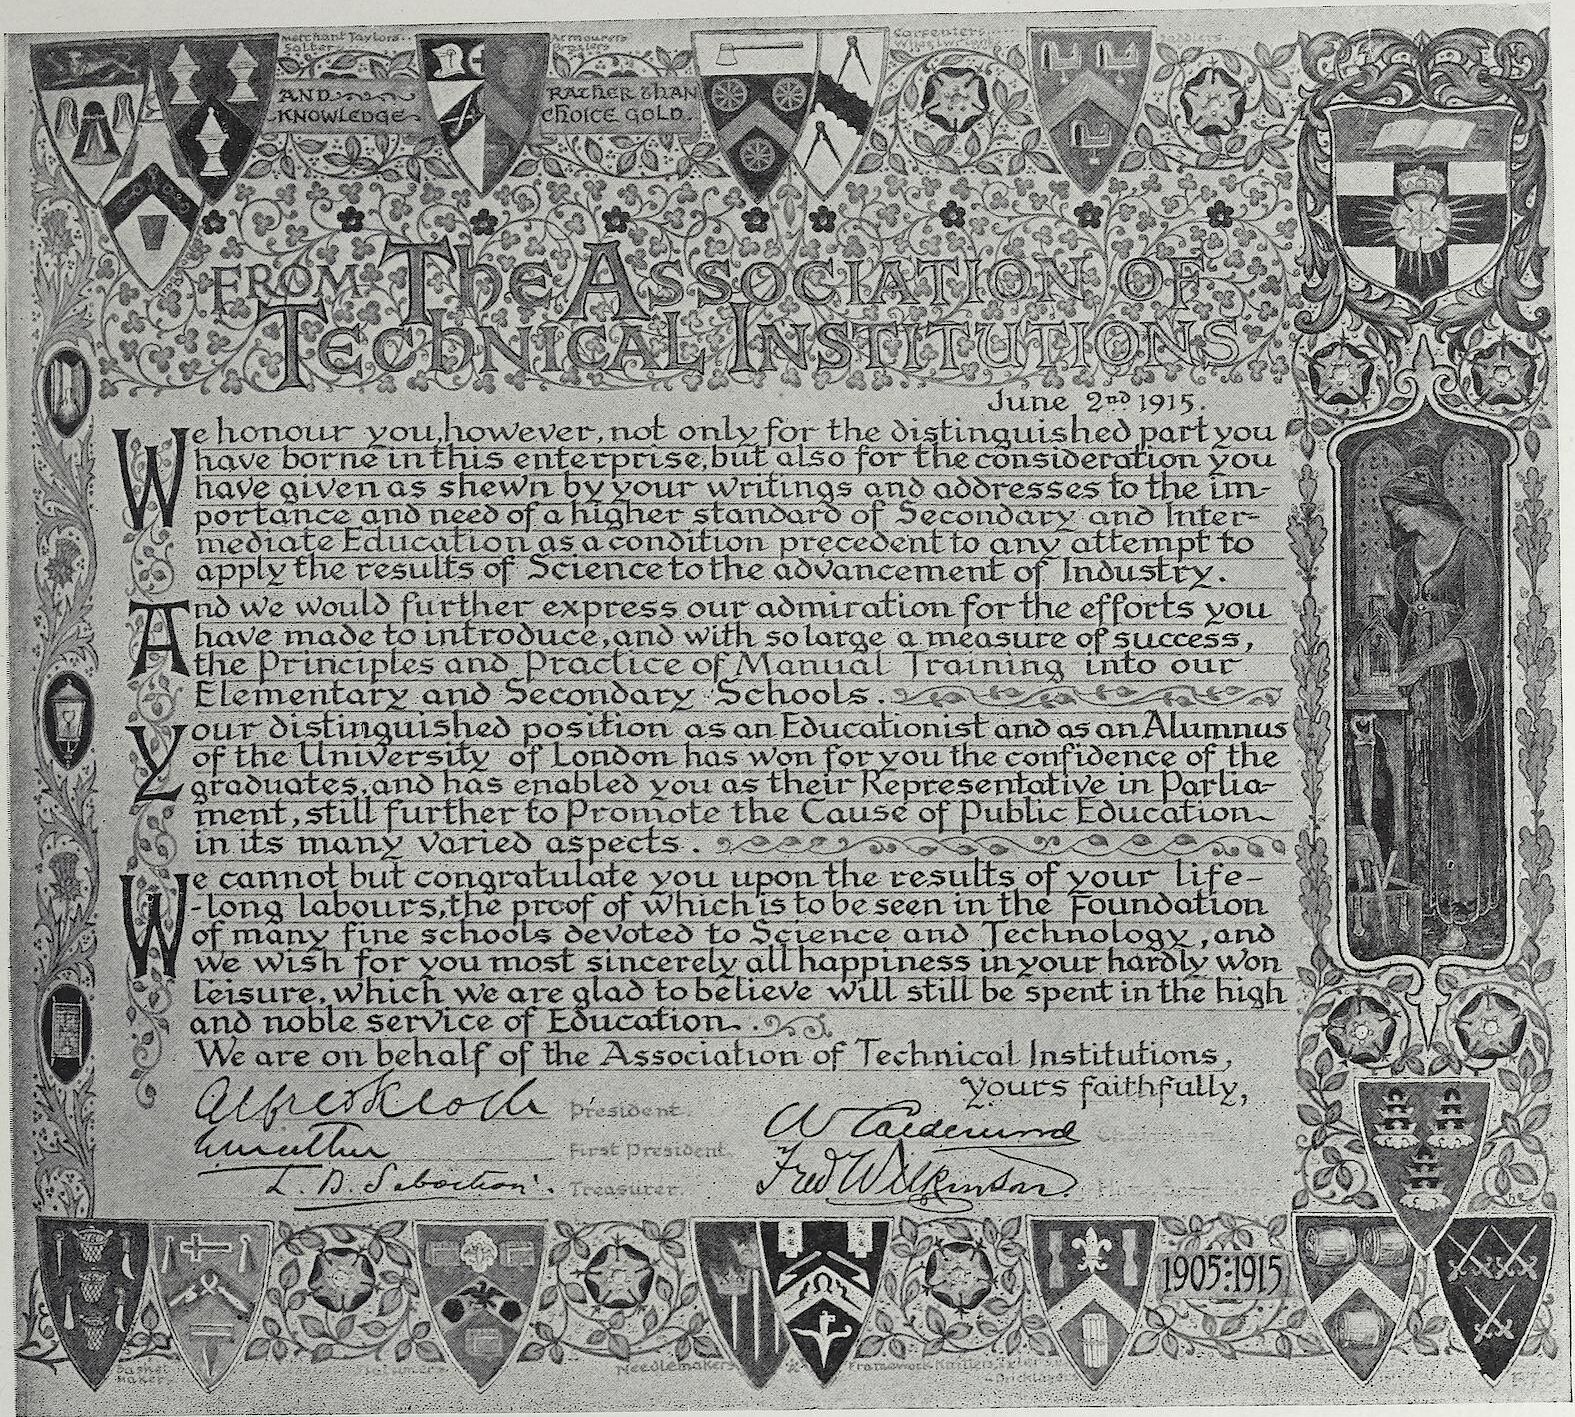 Merchant Taylors
Salter
Armourers
Brasiers
Carpenters
AND
KNOWLEDGE
RATHER THAN
CHOICE GOLD.
FROM THE ASSOCIATION OF
TECHNICAL INSTITUTIONS
June 2nd 1915.
We honour you, however, not only for the distinguished part you
have borne in this enterprise, but also for the consideration you
have given as shewn by your writings and addresses to the im-
portance and need of a higher standard of Secondary and Inter-
mediate Education as a condition precedent to any attempt to
apply the results of Science to the advancement of Industry.
And we would further express our admiration for the efforts you
have made to introduce, and with so large a measure of success,
the Principles and Practice of Manual Training into our
Elementary and Secondary Schools.
Your distinguished position as an Educationist and as an Alumnus
of the University of London has won for you the confidence of the
graduates, and has enabled you as their Representative in Parlia-
ment, still further to Promote the Cause of Public Education
in its many varied aspects.
We cannot but congratulate you upon the results of your life-
-long labours, the proof of which is to be seen in the Foundation
of many fine schools devoted to Science and Technology, and
we wish for you most sincerely all happiness in your hardly won
leisure, which we are glad to believe will still be spent in the high
and noble service of Education.
We are on behalf of the Association of Technical Institutions,
yours faithfully,
President.
First President
Treasurer
Fred Wilkinson
1905:1915
Basket
Maker
Needlemakers
Framework Knitters
Bricklayers